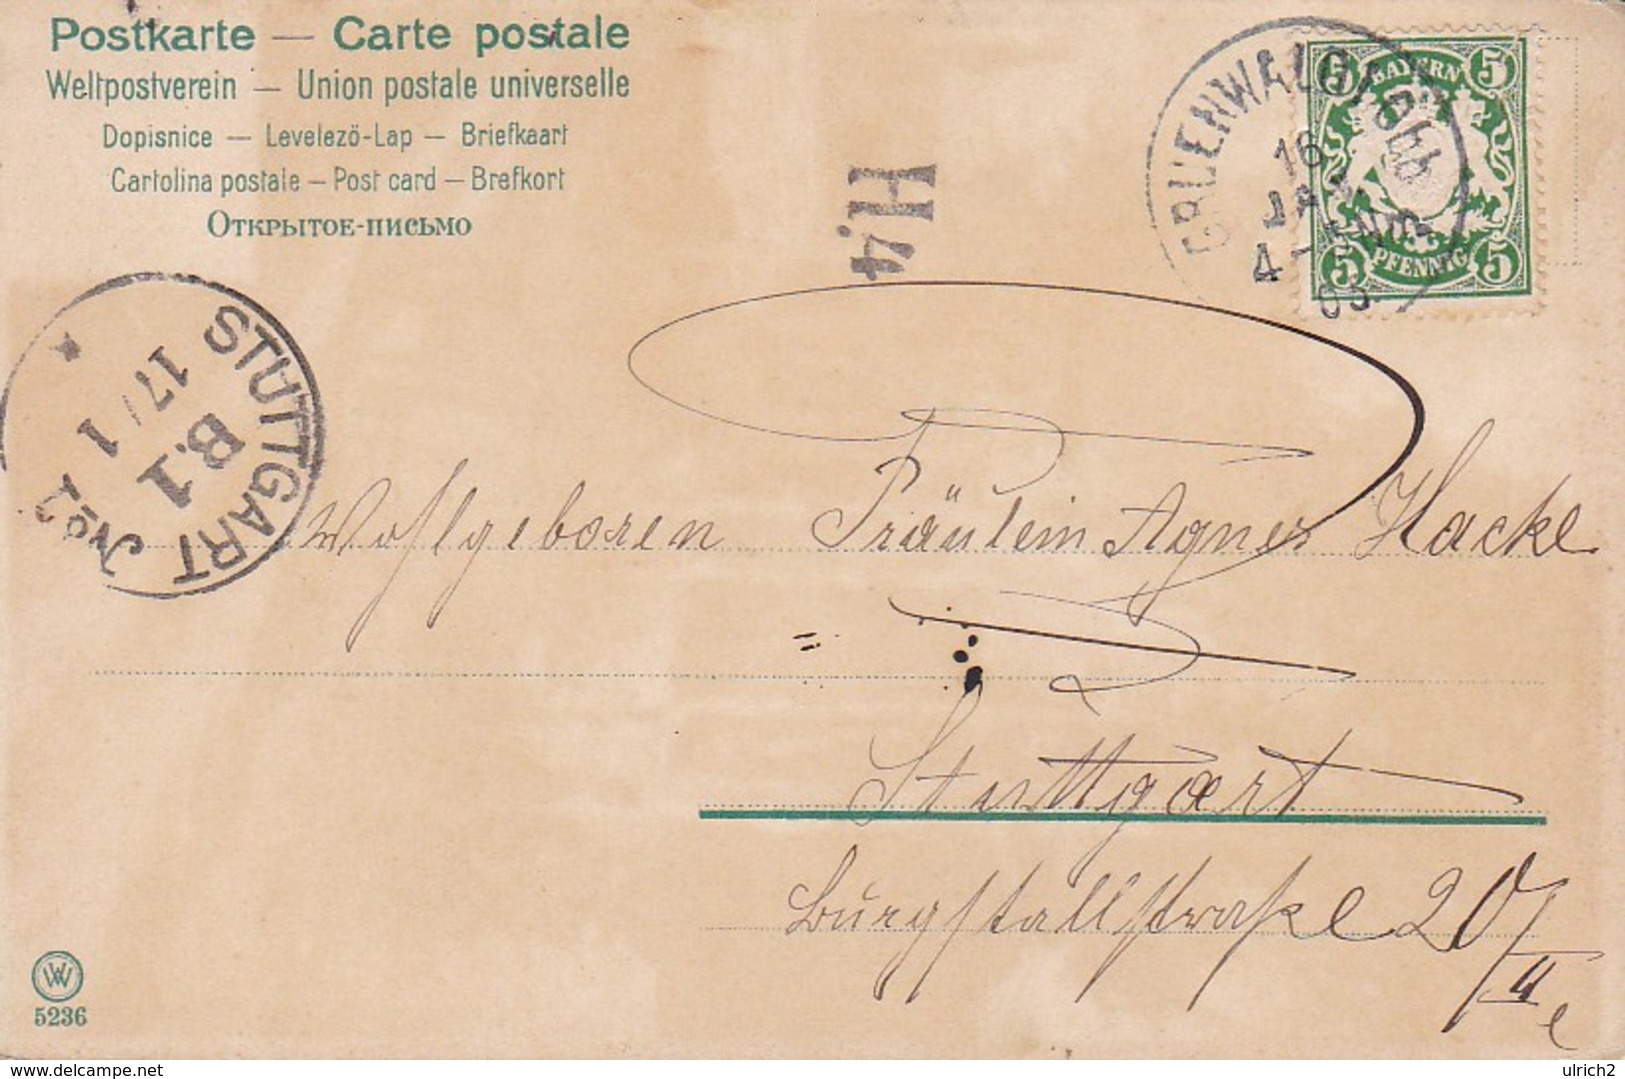 Postkarte — Carte postale
Weltpostverein — Union postale universelle
Dopisnice — Levelezö-Lap — Briefkaart
Cartolina postale — Post card — Brefkort
Открытое-письмо
H.4
GRUENWALD
16
JAN
4-5 N
03
BAYERN
5 5
5 5
PFENNIG
STUTTGART No 2
B.1
17/1
Wohlgeboren Fräulein Agnes Hacke
Stuttgart
Burgstallstraße 20/
II
WW
5236
www.delcampe.net
ulrich2